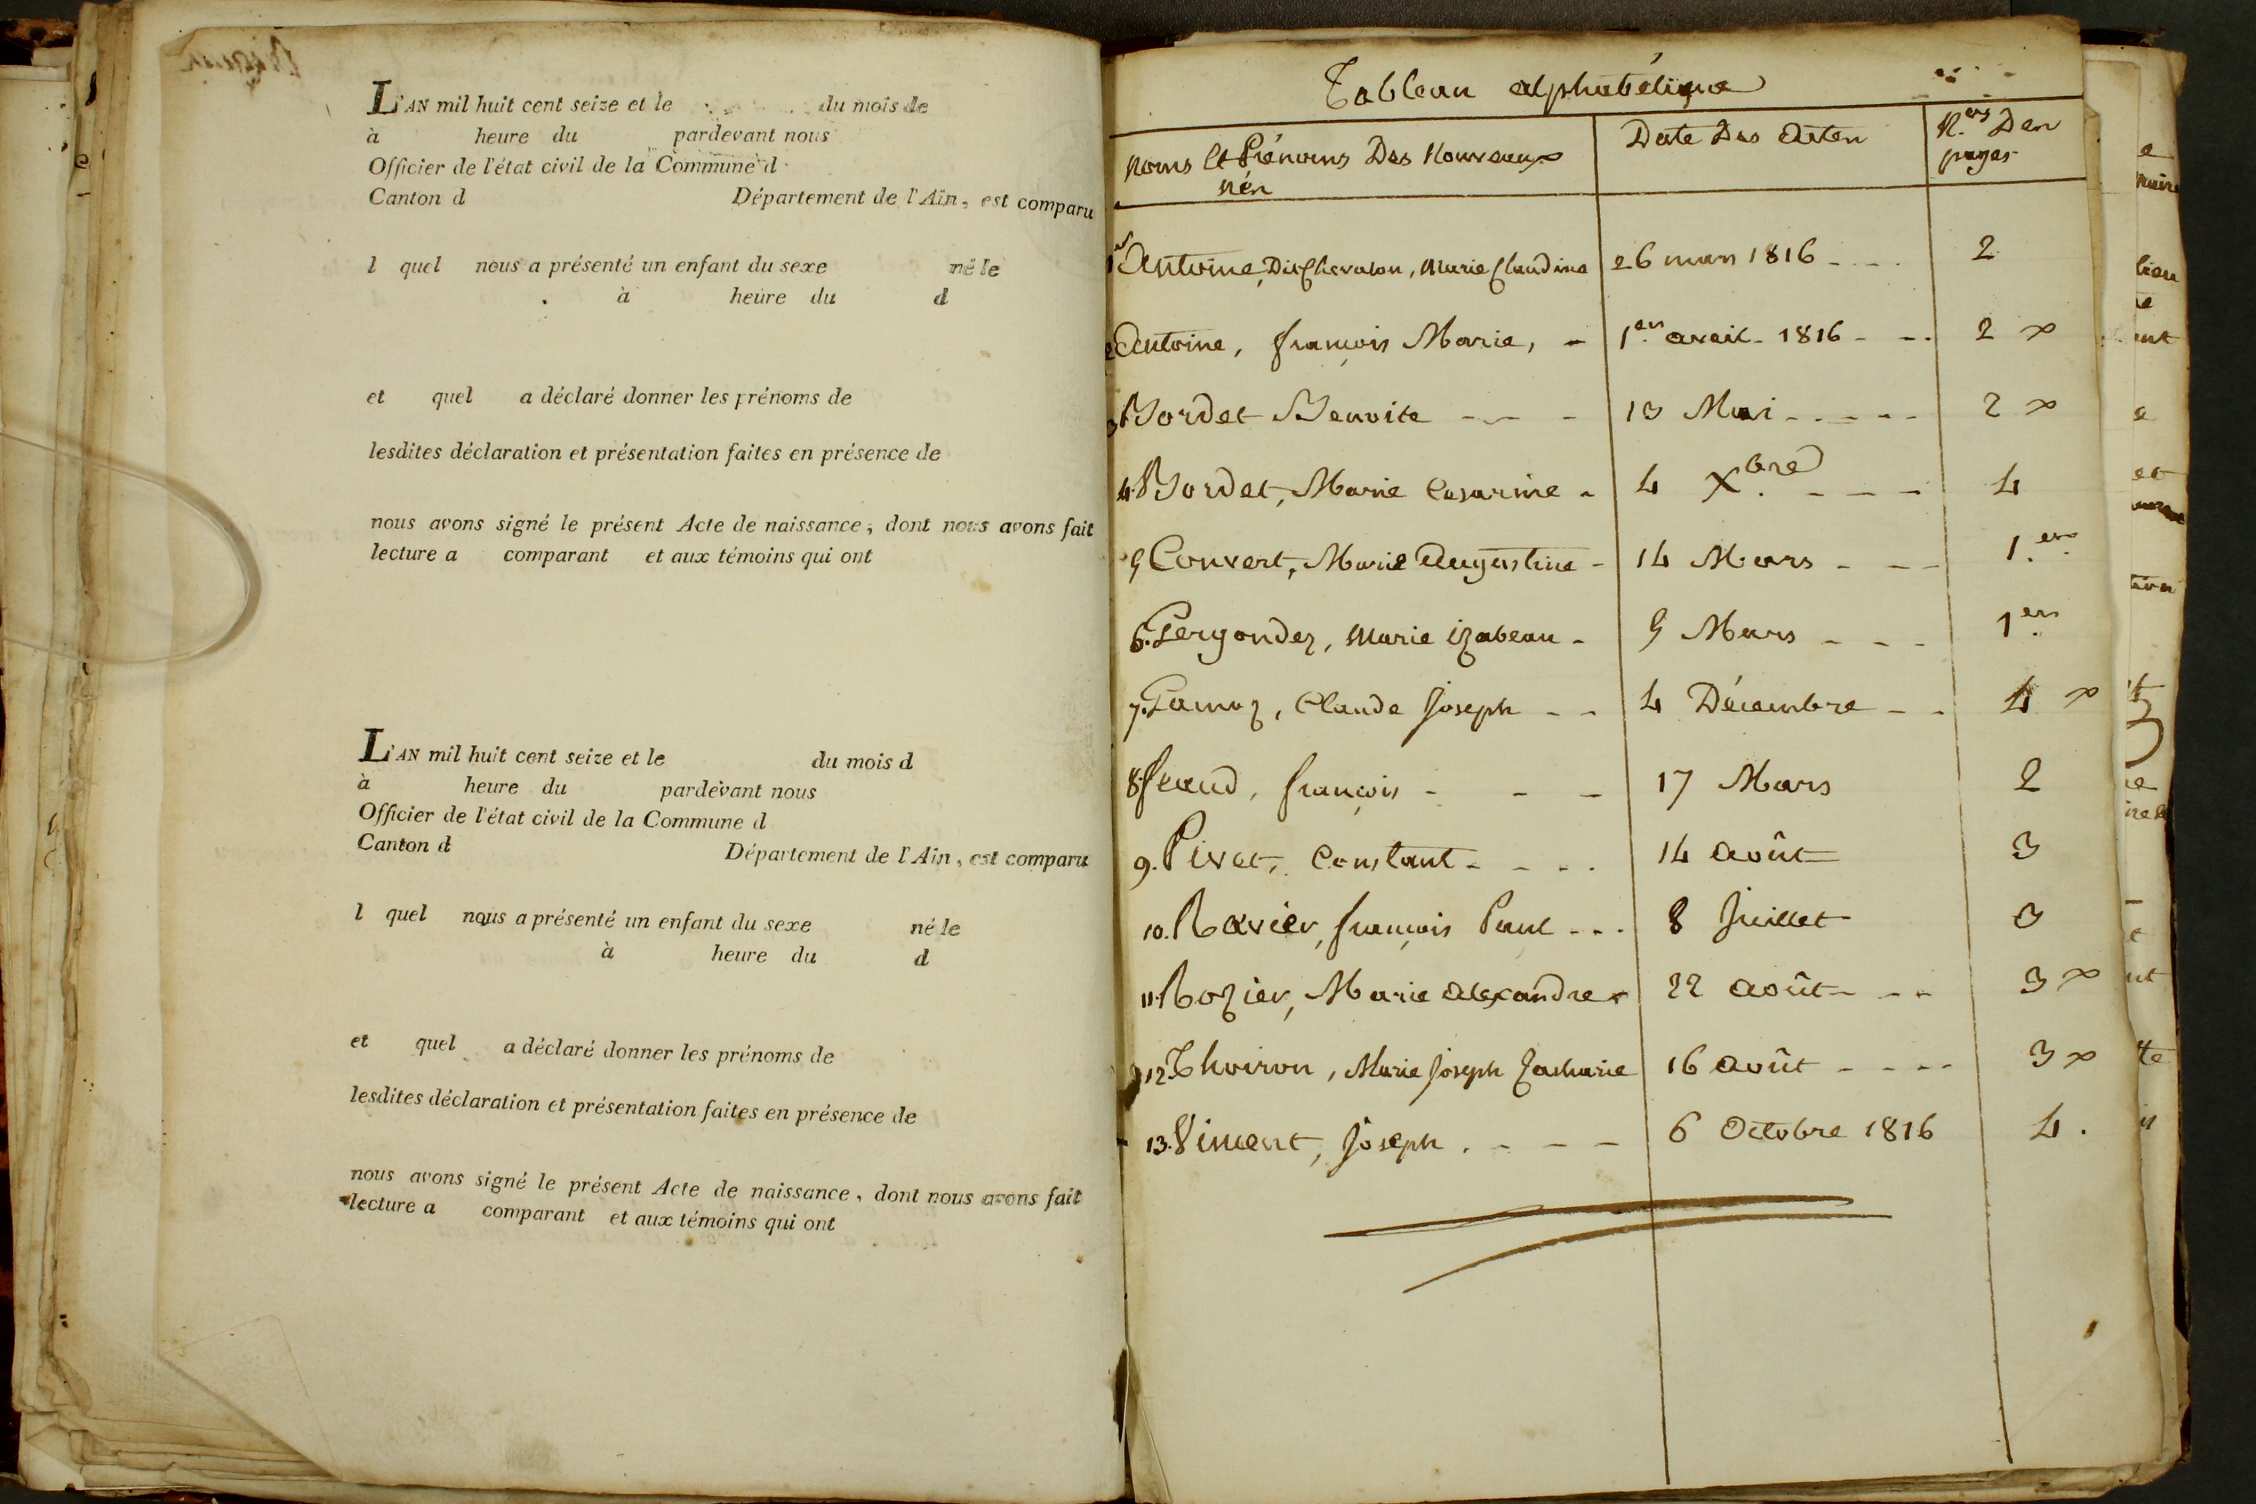 L'AN mil huit cent seize et le du mois de
à heure du pardevant nous
Officier de l'état civil de la Commune d
Canton d Département de l'Ain, est comparu
l quel nous a présenté un enfant du sexe né le
à heure du d
et quel a déclaré donner les prénoms de
lesdites déclaration et présentation faites en présence de
nous avons signé le présent Acte de naissance, dont nous avons fait
lecture a comparant et aux témoins qui ont
L'AN mil huit cent seize et le du mois d
à heure du pardevant nous
Officier de l'état civil de la Commune d
Canton d Département de l'Ain, est comparu
l quel nous a présenté un enfant du sexe né le
à heure du d
et quel a déclaré donner les prénoms de
lesdites déclaration et présentation faites en présence de
nous avons signé le présent Acte de naissance, dont nous avons fait
lecture a comparant et aux témoins qui ont
Tableau alphabétique
Noms Et Prénoms Des Nouveaux Nés
Date Des Actes
N.ros Des pages
1er Antoine, Dit Chevalon, Marie Claudine 26 mars 1816 2
2 Antoine, françois Marie, 1er avril 1816 2 x
3 Bordet Benoite 13 Mai 2 x
4. Bordet, Marie Cesarine 4 Xbre 4
5 Convert, Marie Augustine 14 Mars 1.er
6. Gergondez, Marie izabeau 5 Mars 1er
7. Gamoz, Claude Joseph 4 Décembre 4 x
8. françois 17 Mars 2
9. Pivet, Constant 14 août 3
10. Ravier, françois Paul 8 Juillet 3
11. Rozier, Marie Alexandre 22 août 3 x
12. Thoiron, Marie Joseph Zacharie 16 août 3 x
13. Vincent, Joseph 6 Octobre 1816 4.